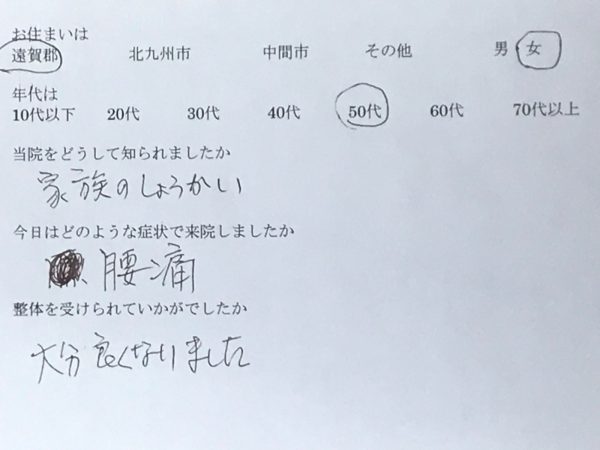 お住まいは
遠賀郡 北九州市 中間市 その他 男 女
年代は
10代以下 20代 30代 40代 50代 60代 70代以上
当院をどうして知られましたか
家族のしょうかい
今日はどのような症状で来院しましたか
腰痛
整体を受けられていかがでしたか
大分良くなりました